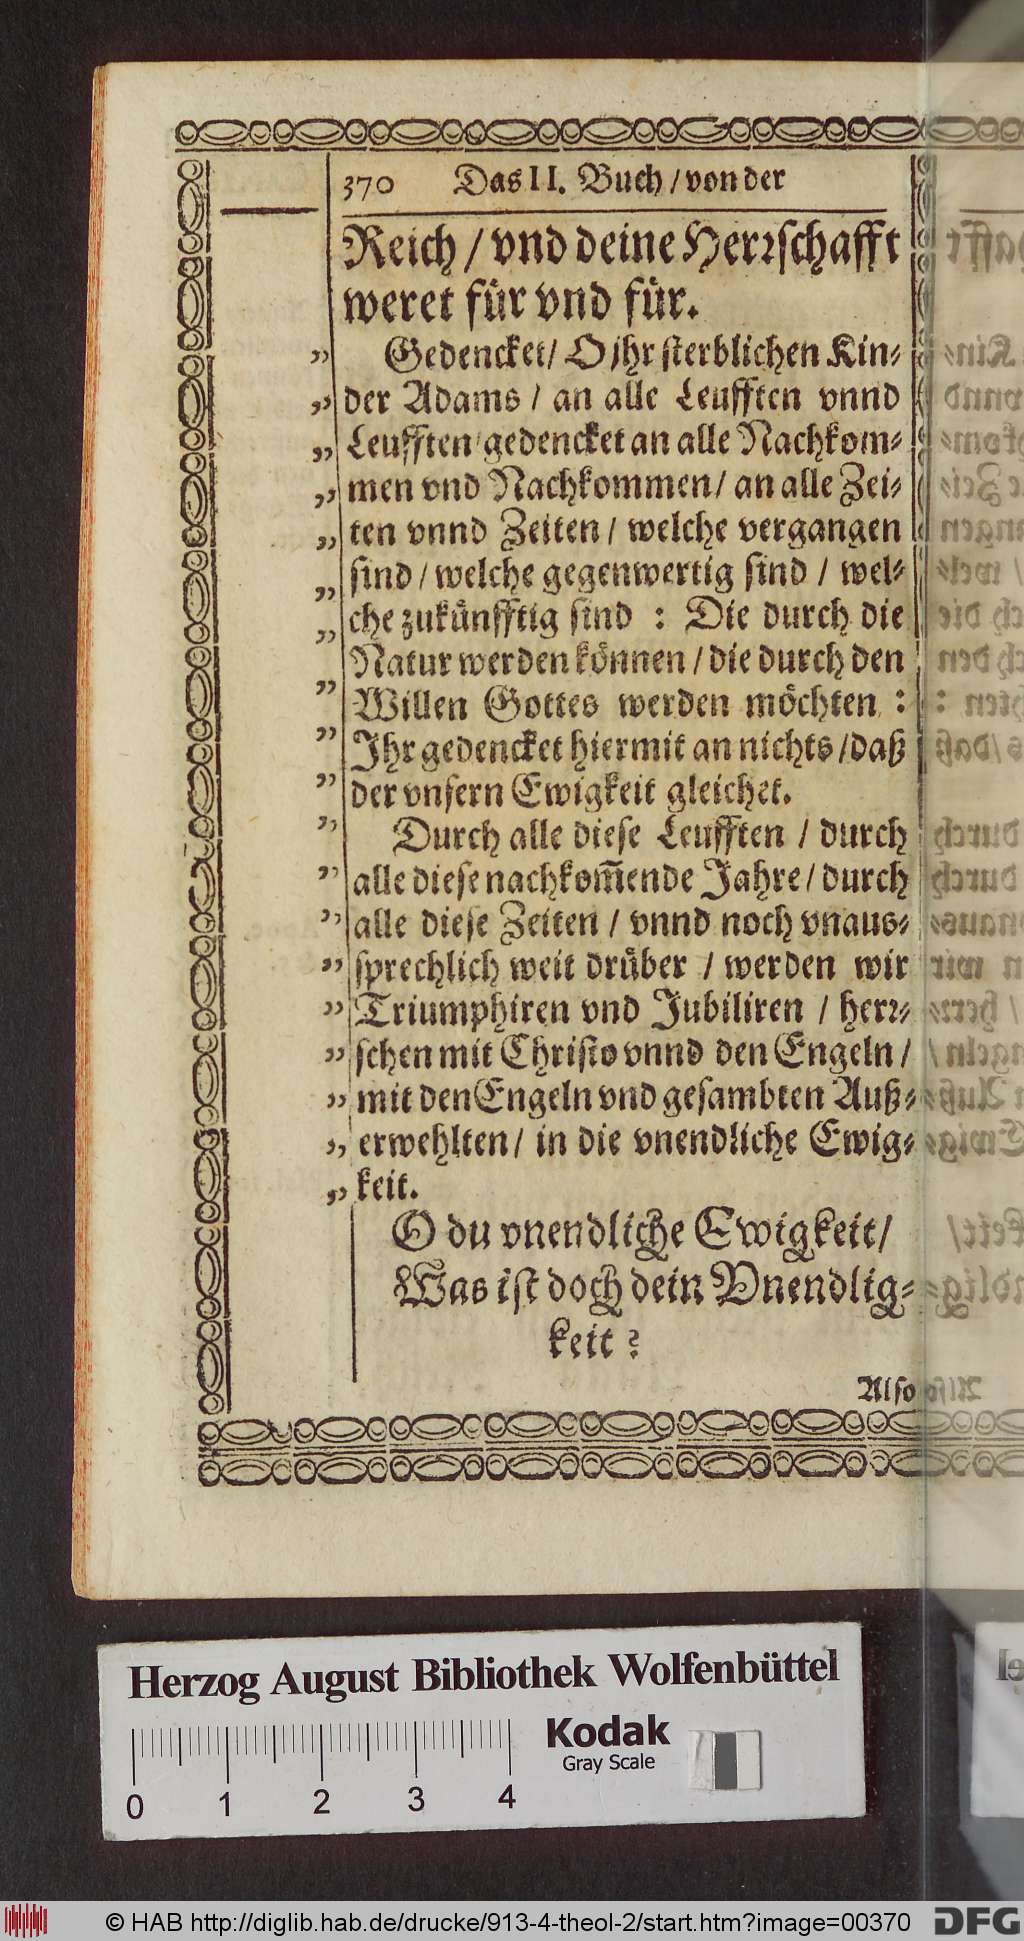 370 Das II. Buch / von der
Reich / vnd deine Herꝛschafft
weret für vnd für.
„ Gedencket / O jhr sterblichen Kin⸗
„ der Adams / an alle Leufften vnnd
„ Leufften / gedencket an alle Nachkom⸗
„ men vnd Nachkommen / an alle Zei⸗
„ ten vnnd Zeiten / welche vergangen
„ sind / welche gegenwertig sind / wel⸗
„ che zukünfftig sind : Die durch die
„ Natur werden können / die durch den
„ Willen Gottes werden möchten :
„ Ihr gedencket hiermit an nichts / daß
„ der vnsern Ewigkeit gleichet.
„ Durch alle diese Leufften / durch
„ alle diese nachkom̃ende Jahre / durch
„ alle diese Zeiten / vnnd noch vnaus⸗
„ sprechlich weit drüber / werden wir
„ Triumphiren vnd Jubiliren / herꝛ⸗
„ schen mit Christo vnnd den Engeln /
„ mit den Engeln vnd gesambten Auß⸗
„ erwehlten / in die vnendliche Ewig⸗
„ keit.
O du vnendliche Ewigkeit /
Was ist doch dein Vnendlig⸗
keit ?
Also
Herzog August Bibliothek Wolfenbüttel
Kodak
Gray Scale
0 1 2 3 4
© HAB http://diglib.hab.de/drucke/913-4-theol-2/start.htm?image=00370
DFG